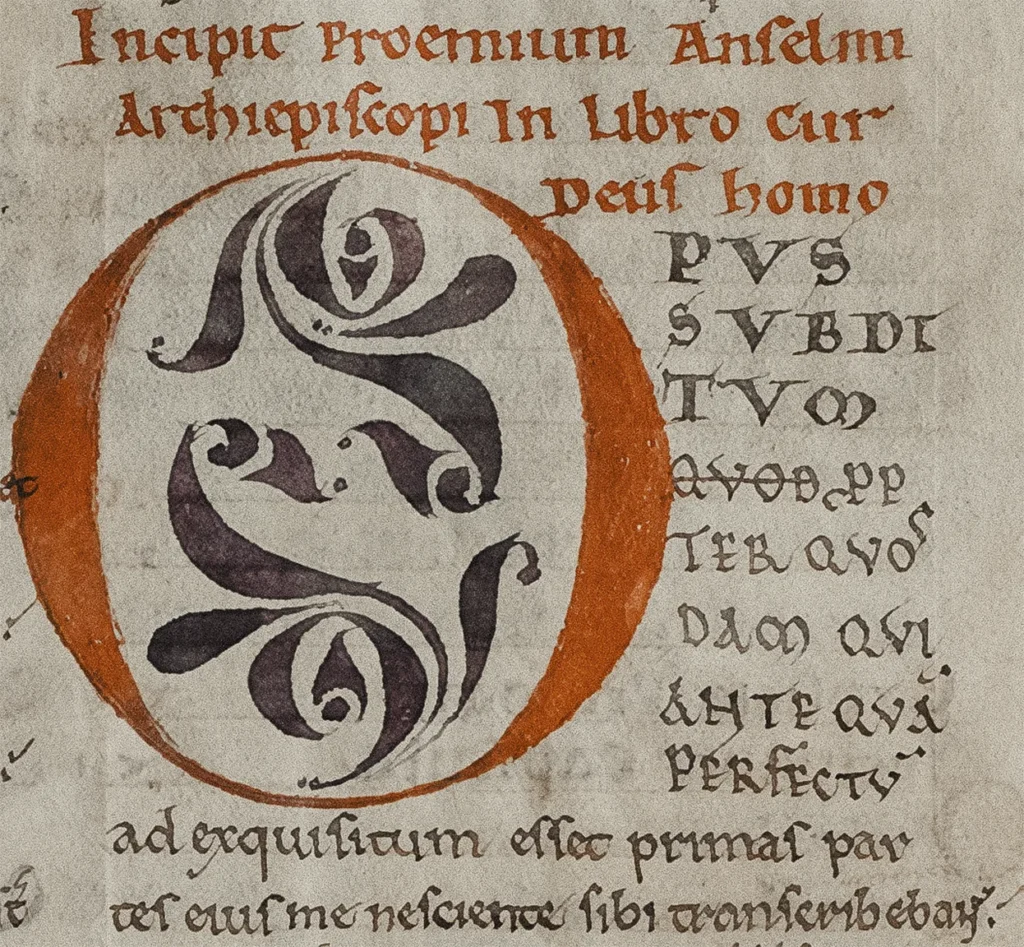 Incipit Proemium Anselmi
Archiepiscopi In Libro Cur
Deus homo
OPVS
SVBDI
TVM
QVOD PP
TER QVOS
DAM QVI
ANTEQVĀ
PERFECTV̄
ad exquisitum esset primas par
tes eius me nesciente sibi transcribebant.